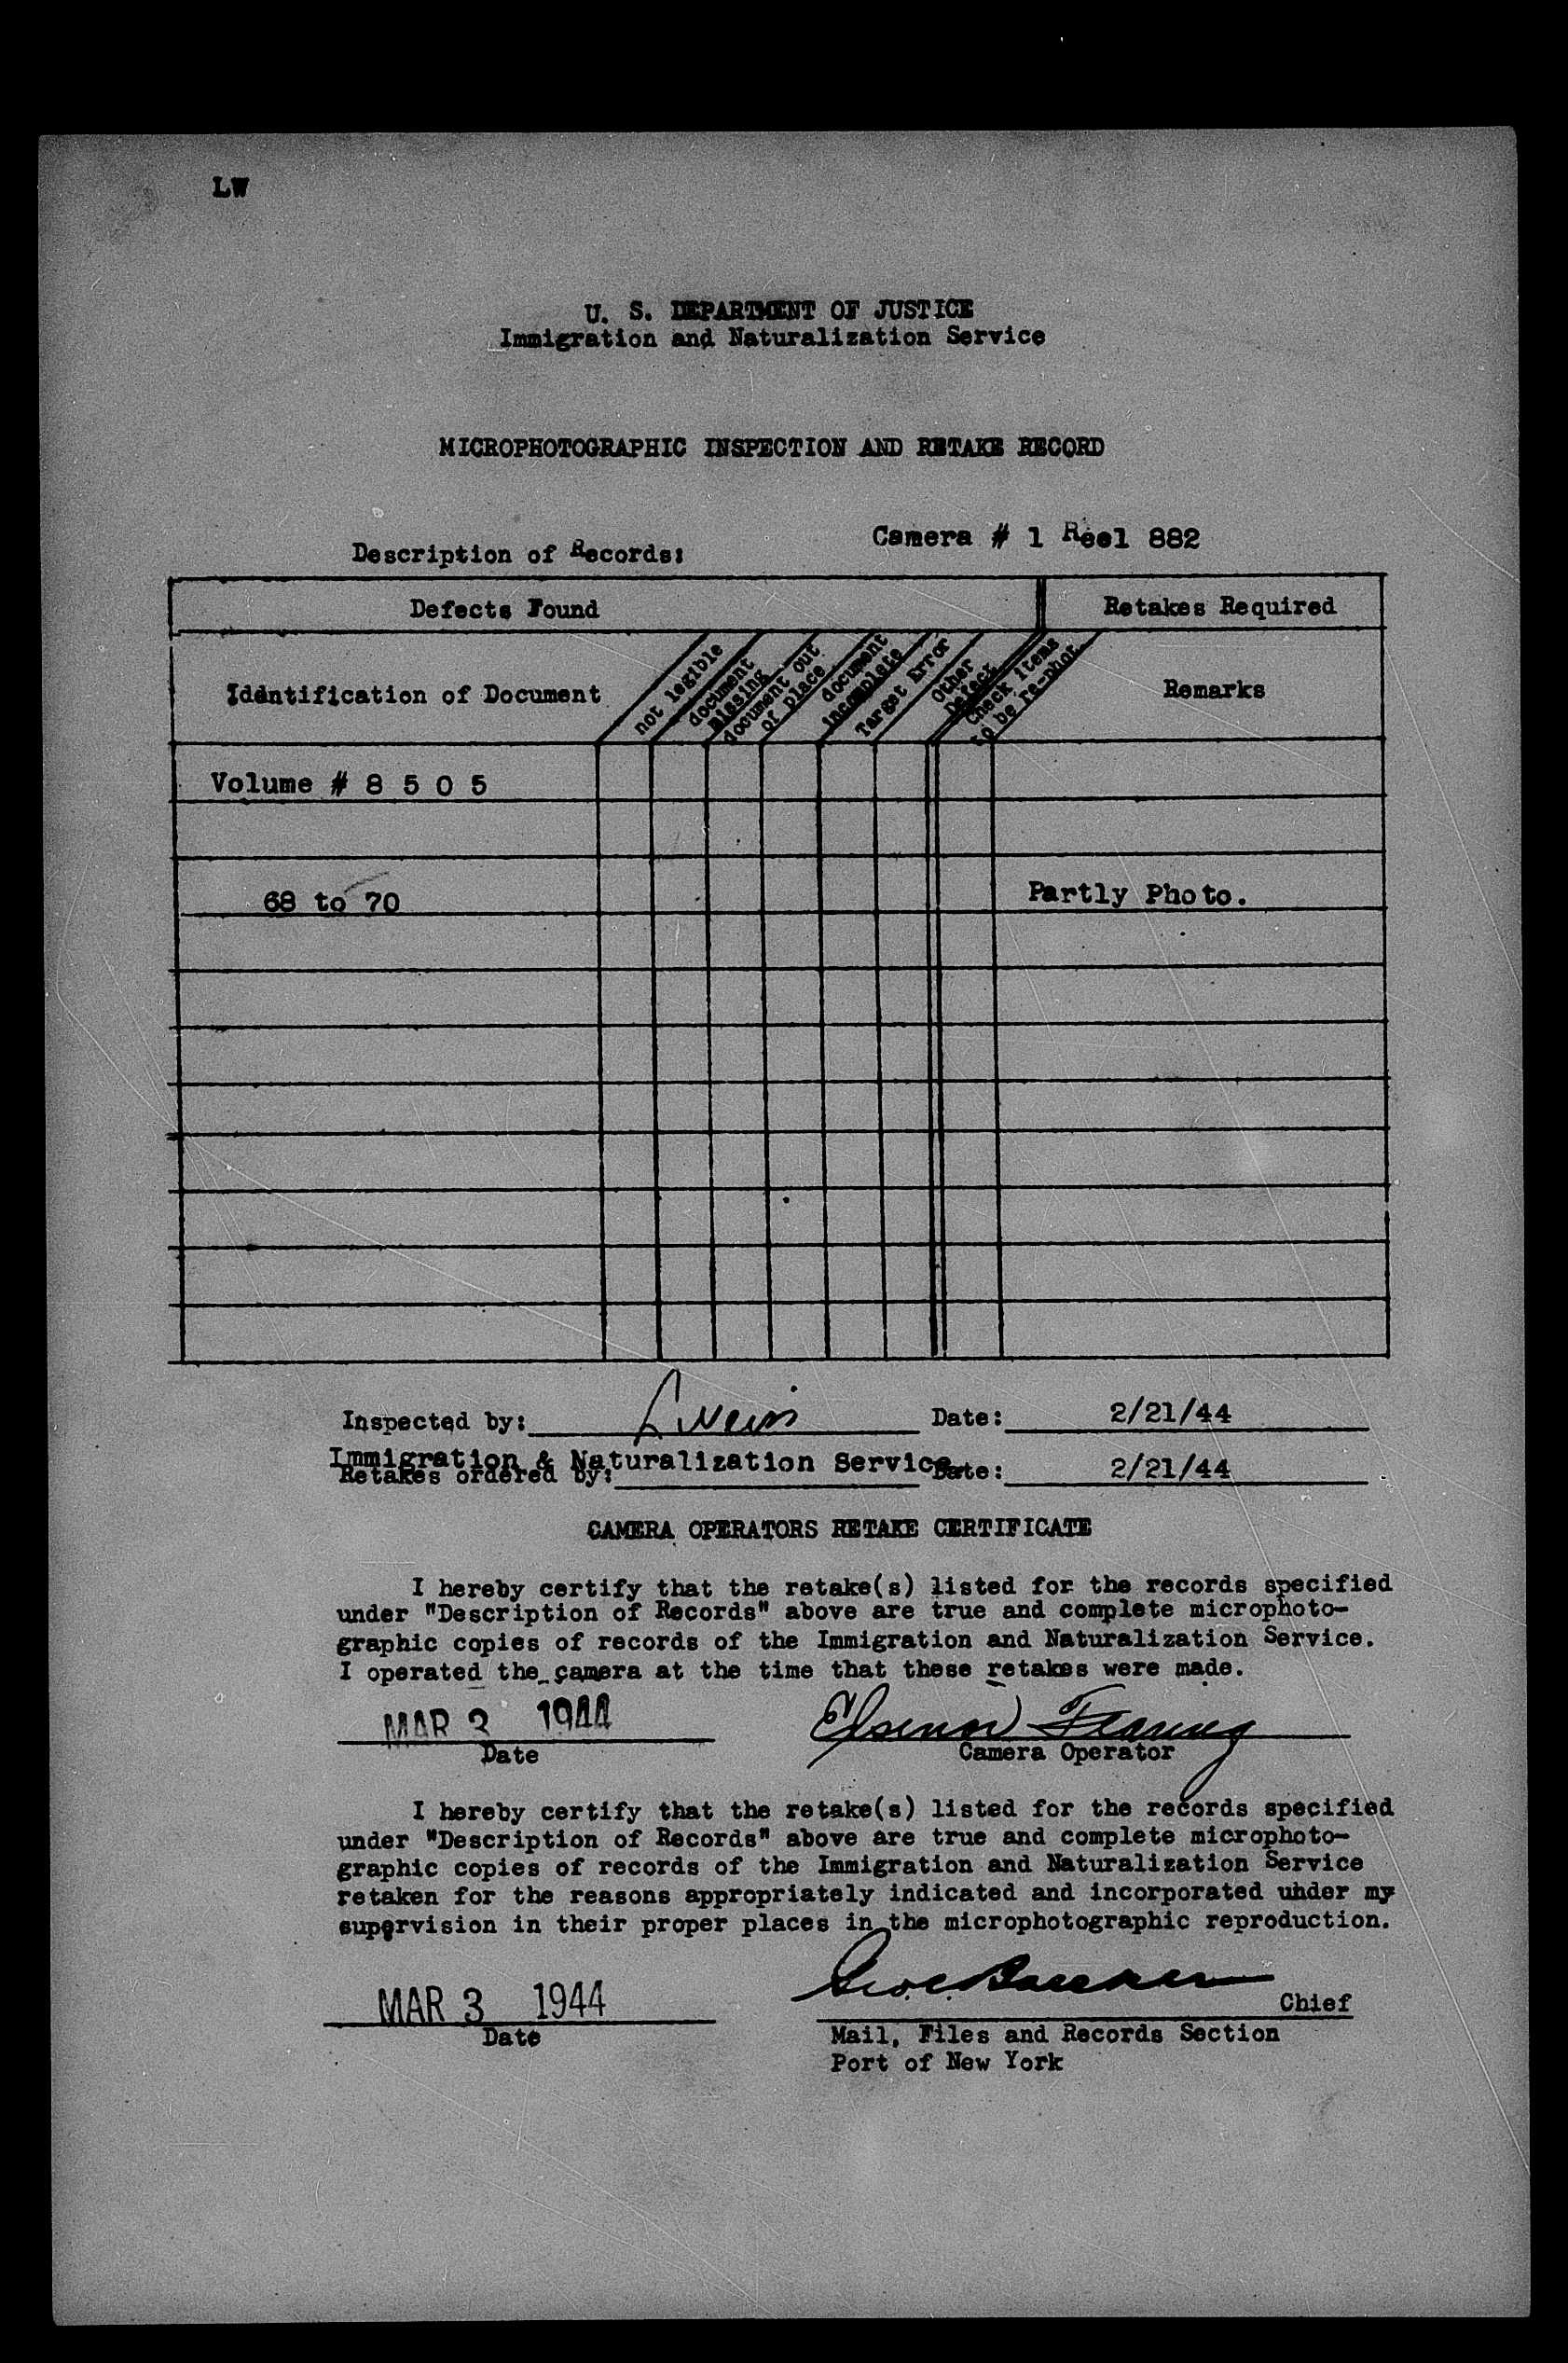 LW
U. S. DEPARTMENT OF JUSTICE
Immigration and Naturalization Service
MICROPHOTOGRAPHIC INSPECTION AND RETAKE RECORD
Camera # 1 Reel 882
Description of Records:
Defects Found
Retakes Required
Identification of Document
not legible
document missing
document out of place
document incomplete
Target Error
Other Defect
Check items to be re-phot.
Remarks
Volume # 8 5 0 5
68 to 70
Partly Photo.
Inspected by: L Weiss Date: 2/21/44
Immigration & Naturalization Service
Retakes ordered by: Date: 2/21/44
CAMERA OPERATORS RETAKE CERTIFICATE
I hereby certify that the retake(s) listed for the records specified
under "Description of Records" above are true and complete microphoto-
graphic copies of records of the Immigration and Naturalization Service.
I operated the camera at the time that these retakes were made.
MAR 3 1944
Date
Camera Operator
I hereby certify that the retake(s) listed for the records specified
under "Description of Records" above are true and complete microphoto-
graphic copies of records of the Immigration and Naturalization Service
retaken for the reasons appropriately indicated and incorporated under my
supervision in their proper places in the microphotographic reproduction.
MAR 3 1944
Chief
Date
Mail, Files and Records Section
Port of New York